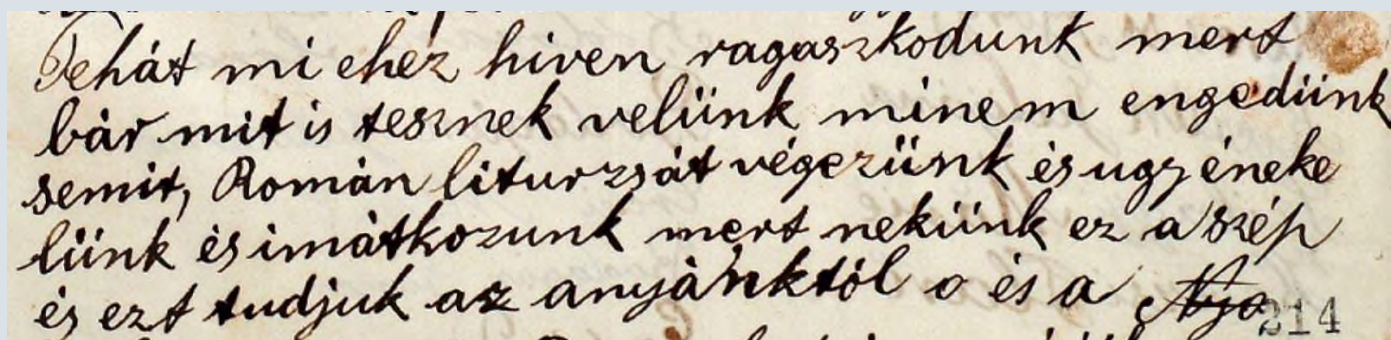 Tehát mi ehez hiven ragaszkodunk mert
bár mit is tesznek velünk minem engedünk
semit, Román liturzsát végezünk és ugy éneke
lünk és imátkozunk mert nekünk ez a szép
és ezt tudjuk az anyánktól o és a
214